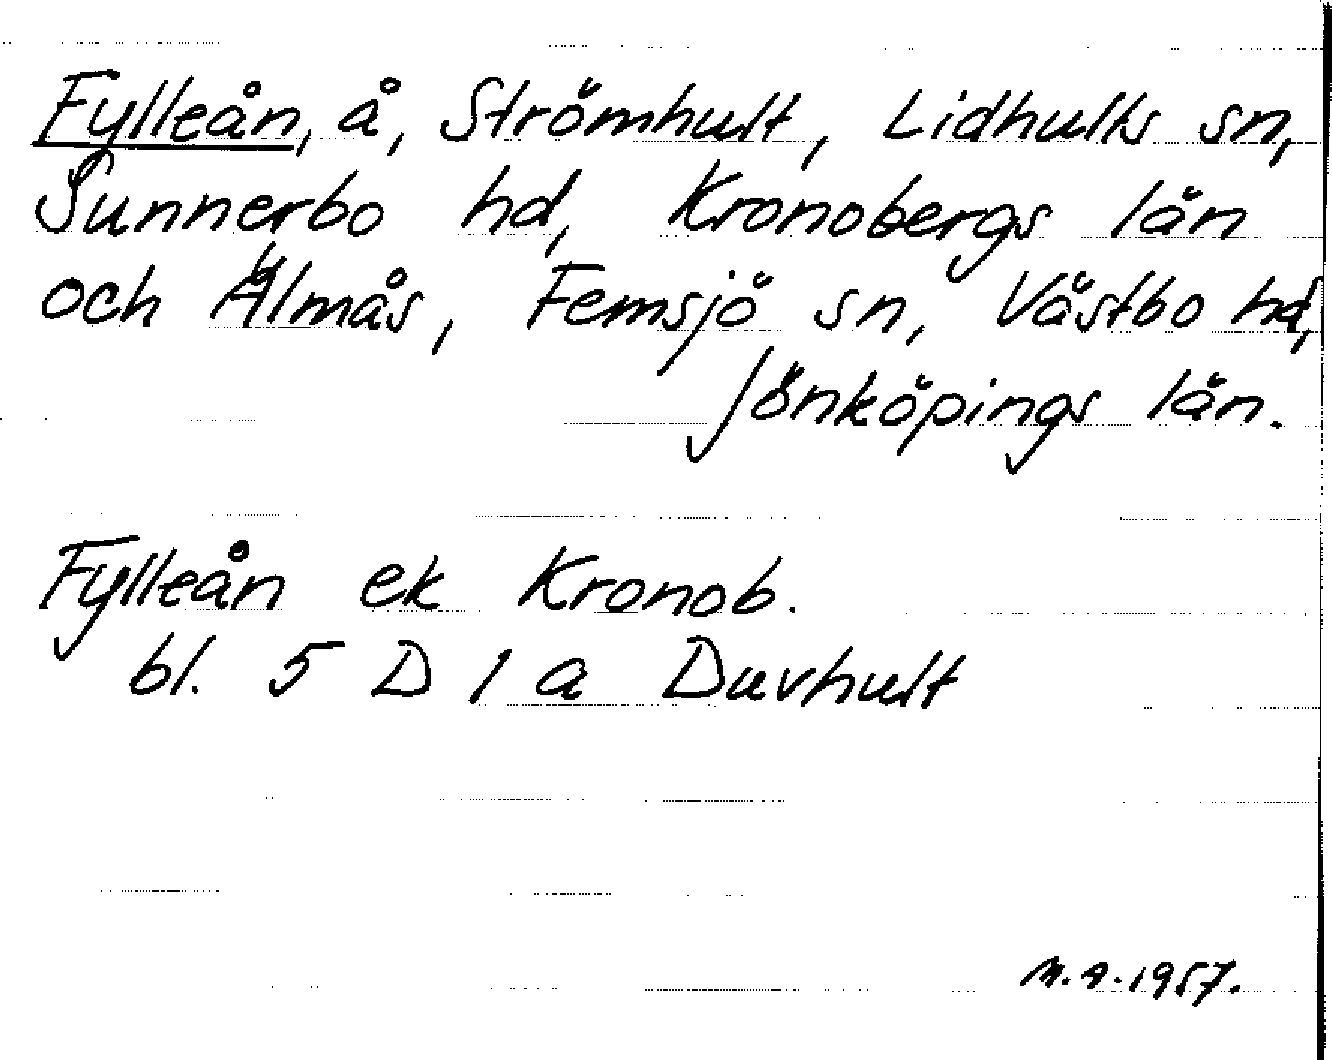 Fylleån, å, Strömhult, Lidhults sn,
Sunnerbo hd, Kronobergs län
och Älmås, Femsjö sn, Västbo hd,
Jönköpings län.
Fylleån ek Kronob.
bl. 5 D 1 a Duvhult
M.A. 1957.